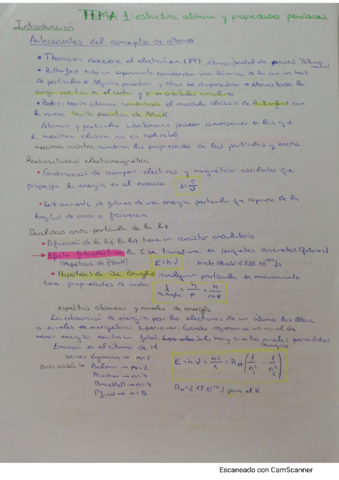 TEMA 1: estructura atómica y propiedades periódicas
Introducción
Antecedentes del concepto de átomo
• Thomson descubre el electrón 1897, átomo
• Rutherford hizo un experimento
de partículas α. Algunas pasaban y otras se dispersaban → átomo toda la
carga positiva en el centro y e⁻ en orbitales circulares
• Bohr: teoría atómica combinando el modelo clásico de Rutherford con
la nueva teoría cuántica de Planck.
Átomos y partículas subatómicas poseen dimensiones en las que
la mecánica clásica no es aplicable
mecánica cuántica combina las propiedades de las partículas y ondas
Radiación electromagnética
• Combinaciones de campos eléctricos y magnéticos oscilantes que
propagan la energía en el espacio λ = c/ν
• Cuánticamente de forma de una energía particular que depende de la
longitud de onda o frecuencia.
Dualidad onda partícula de la luz
• Difracción de la luz la luz tiene un carácter ondulatorio
• Efecto fotoeléctrico la E se transfiere en paquetes discretos (fotones)
(Hipótesis de Planck) E = h·ν
• Hipótesis de De Broglie cualquier partícula en movimiento
tiene propiedades de onda λ = h/p = h/m·v
espectros atómicos y niveles de energía
La absorción de energía por los electrones de un átomo los lleva
a niveles de energéticos superiores. Cuando regresan a un nivel de
menor energía emiten fotón
Emisión en el átomo de H
series Lyman → n=1
Balmer → n=2
→ n=3
Brackett → n=4
Pfund → n=5
E = h·ν = hc/λ = R_H (1/n²₁ - 1/n²₂)
para el H
Escaneado con CamScanner